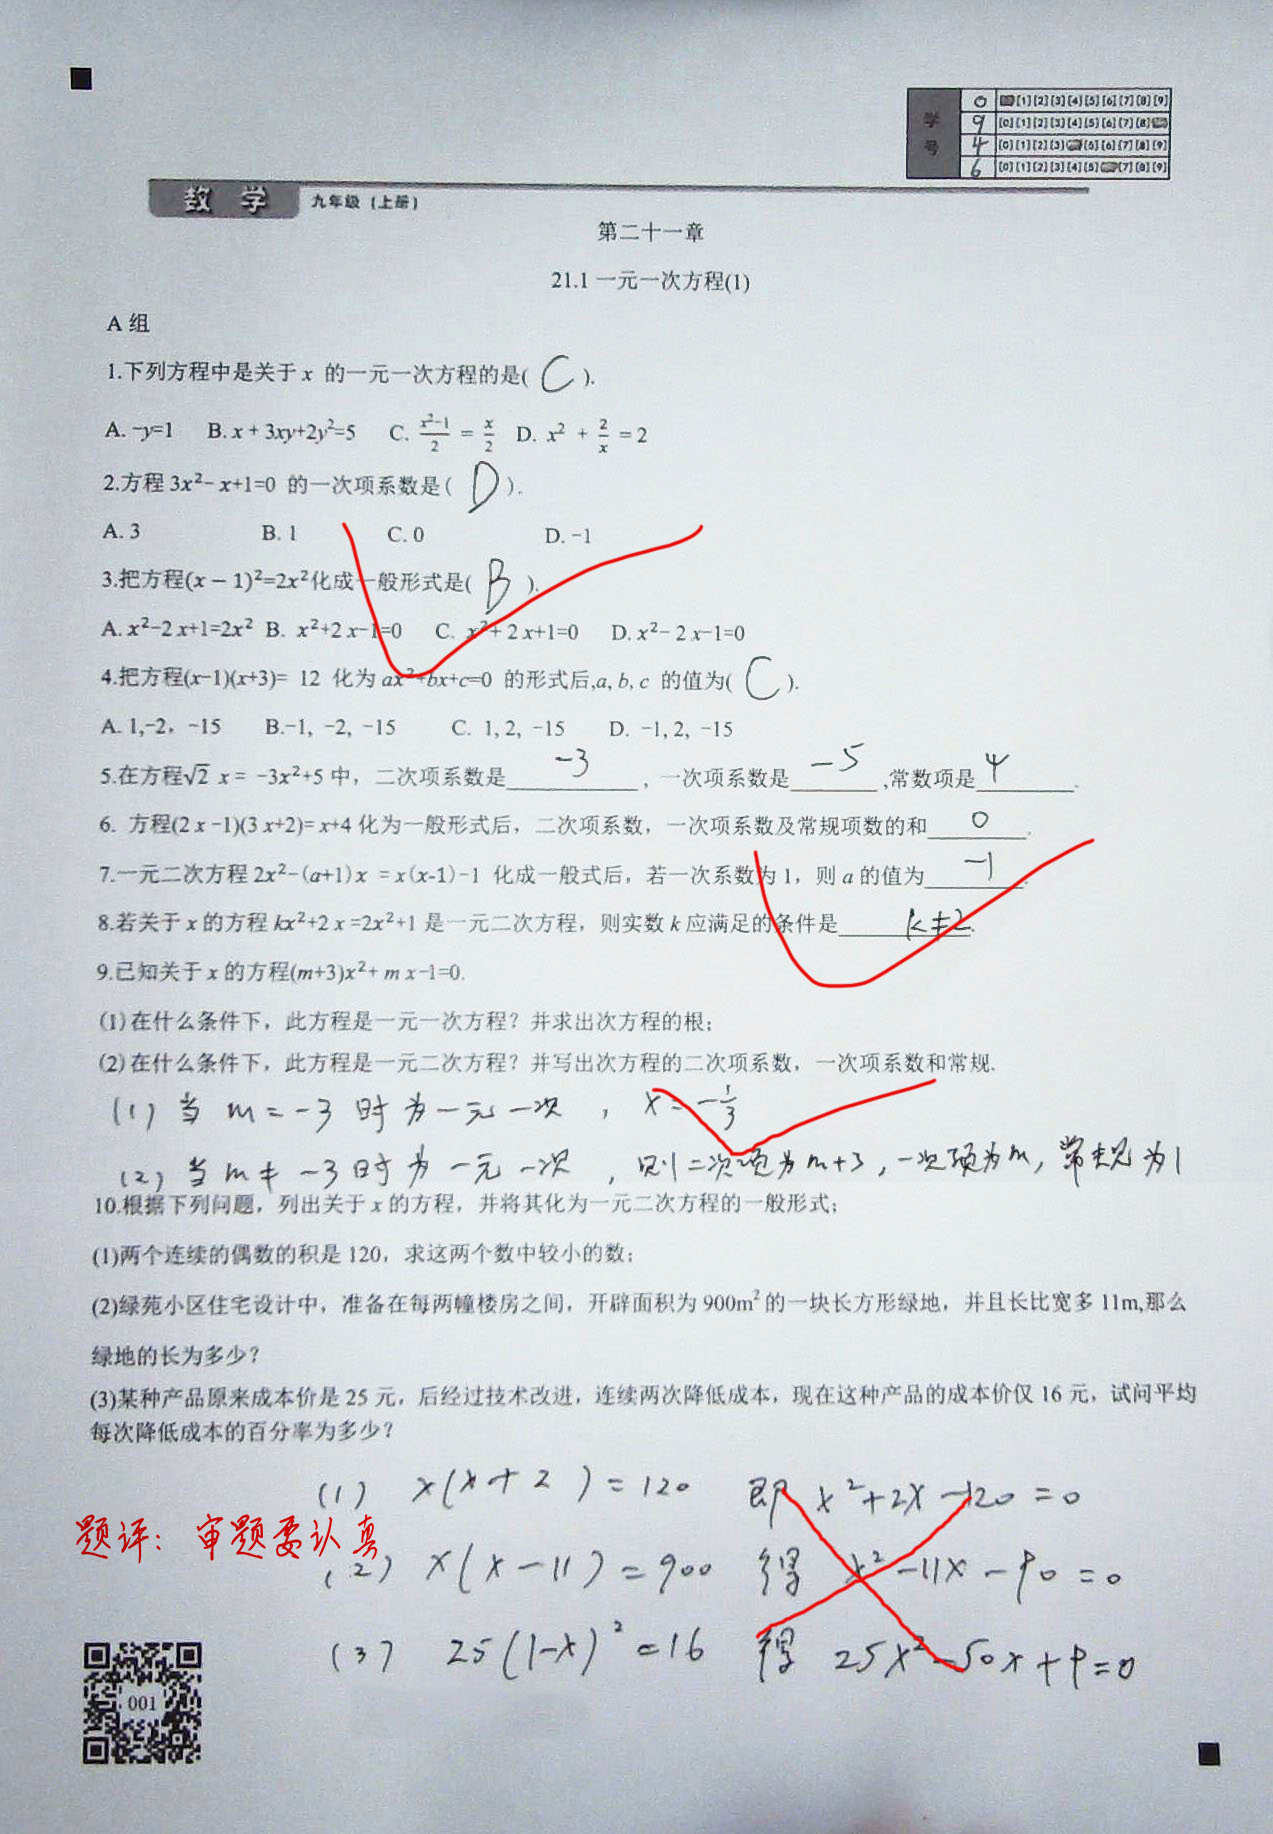 学号
0 [1] [2] [3] [4] [5] [6] [7] [8] [9]
9 [0] [1] [2] [3] [4] [5] [6] [7] [8]
4 [0] [1] [2] [3] [5] [6] [7] [8] [9]
6 [0] [1] [2] [3] [4] [5] [7] [8] [9]
数学 九年级（上册）
第二十一章
21.1 一元一次方程(1)
A 组
1.下列方程中是关于 x 的一元一次方程的是( C ).
A. -y=1 B. x + 3xy+2y²=5 C. (x²-1)/2 = x/2 D. x² + 2/x = 2
2.方程 3x²- x+1=0 的一次项系数是( D ).
A. 3 B. 1 C. 0 D. -1
3.把方程(x − 1)²=2x²化成一般形式是( B ).
A. x²-2 x+1=2x² B. x²+2 x-1=0 C. x²+ 2 x+1=0 D. x²- 2 x-1=0
4.把方程(x-1)(x+3)= 12 化为 ax²+bx+c=0 的形式后,a, b, c 的值为( C ).
A. 1,-2，-15 B.-1, -2, -15 C. 1, 2, -15 D. -1, 2, -15
5.在方程√2 x = -3x²+5 中，二次项系数是 -3 ，一次项系数是 -5 ,常数项是 4 .
6. 方程(2 x -1)(3 x+2)= x+4 化为一般形式后，二次项系数，一次项系数及常规项数的和 0 .
7.一元二次方程 2x²-(a+1) x = x (x-1) -1 化成一般式后，若一次系数为 1，则 a 的值为 -1 .
8.若关于 x 的方程 kx²+2 x =2x²+1 是一元二次方程，则实数 k 应满足的条件是 k≠2 .
9.已知关于 x 的方程(m+3)x²+ m x-1=0.
(1) 在什么条件下，此方程是一元一次方程？并求出次方程的根；
(2) 在什么条件下，此方程是一元二次方程？并写出次方程的二次项系数，一次项系数和常规.
(1) 当 m = -3 时 为 一 元 一 次 ， x = -1/3
(2) 当 m ≠ -3 时 为 一 元 一 次 ，则二次项为 m+3，一次项为 m，常规为 1
10.根据下列问题，列出关于 x 的方程，并将其化为一元二次方程的一般形式；
(1)两个连续的偶数的积是 120，求这两个数中较小的数；
(2)绿苑小区住宅设计中，准备在每两幢楼房之间，开辟面积为 900m² 的一块长方形绿地，并且长比宽多 11m,那么
绿地的长为多少？
(3)某种产品原来成本价是 25 元，后经过技术改进，连续两次降低成本，现在这种产品的成本价仅 16 元，试问平均
每次降低成本的百分率为多少？
(1) x(x+2) = 120 即 x²+2x-120 = 0
题评：审题要认真
(2) x(x-11) = 900 得 x²-11x-90 = 0
(3) 25(1-x)² = 16 得 25x²-50x+9=0
001